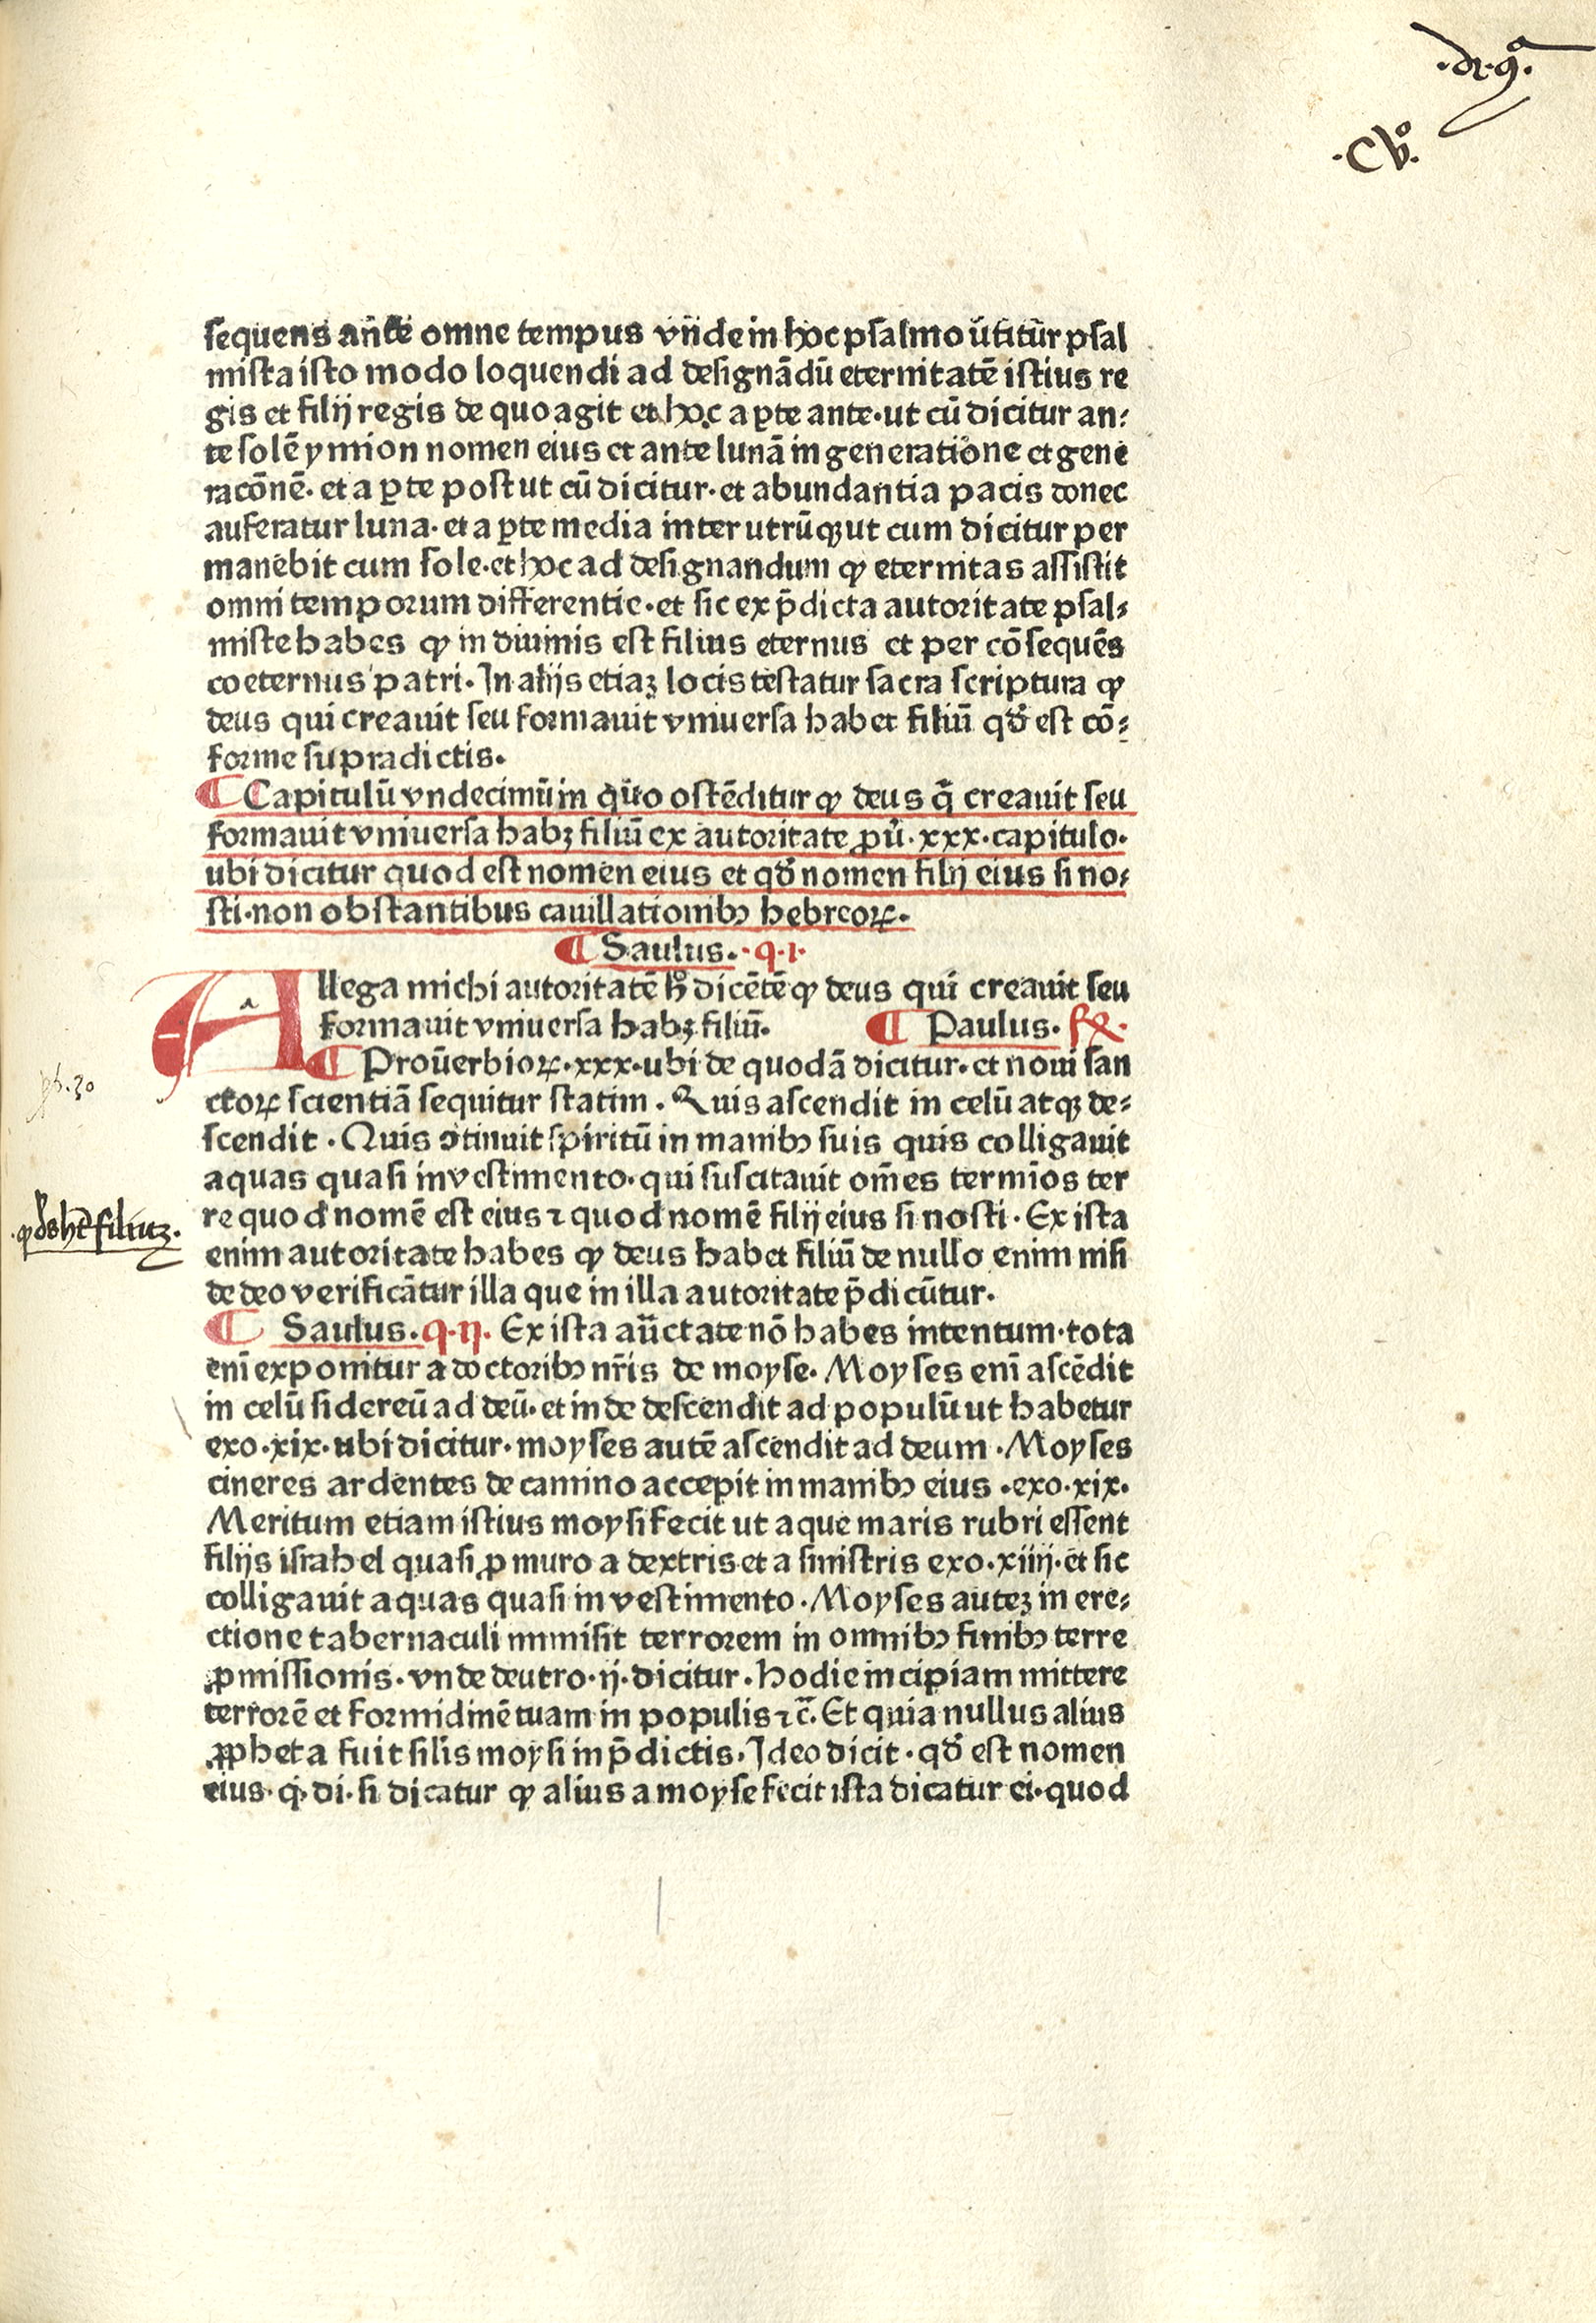 .dr.9ª.
.Cbº.
sequens an̄te omne tempus vn̄de in hoc psalmo ūtitūr psal
mista isto modo loquendi ad designādū eternitatē istius re
gis et filij regis de quo agit et hoc a ꝑte ante·ut cū dicitur an⸗
te solē ymion nomen eius et ante lunā in generatione et gene
racōnē· et a ꝑte post ut cū dicitur·et abundantia pacis donec
auferatur luna· et a ꝑte media inter utrūqꝫ ut cum dicitur per
manebit cum sole·et hoc ad designandum ꝙ eternitas assistit
omni temporum differentie·et sic ex p̄dicta autoritate psal⸗
miste habes ꝙ in diuinis est filius eternus et per cōsequēs
coeternus patri·In alijs etiaꝫ locis testatur sacra scriptura ꝙ
deus qui creauit seu formauit vniuersa habet filiū qđ est cō⸗
forme supradictis·
¶ Capitulū vndecimū in quo ostēditur ꝙ deus q̄ creauit seu
formauit vniuersa habꝫ filiū ex autoritate ꝓū·xxx·capitulo·
ubi dicitur quod est nomen eius et qđ nomen filij eius si no⸗
sti·non obstantibus cauillationibꝰ hebreoꝝ·
¶ Saulus·q·ı·
Allega michi autoritatē h̊ dicētē ꝙ deus qui creauit seu
formauit vniuersa habꝫ filiū· ¶ Paulus·
¶ Prouerbioꝝ·xxx·ubi de quodā dicitur·et noui san
ctoꝝ scientiā sequitur statim·Quis ascendit in celū atqꝫ de⸗
scendit·Quis ꝯtinuit spiritū in manibꝰ suis quis colligauit
aquas quasi in vestimento·qui suscitauit om̄es termīos ter
re quod nomē est eius ⁊ quod nomē filij eius si nosti·Ex ista
.ꝙ ds hēt filiuꝫ.
enim autoritate habes ꝙ deus habet filiū de nullo enim nisi
de deo verificātur illa que in illa autoritate p̄dicūtur·
¶ Saulus·q·ıȷ· Ex ista auc̄tate nō habes intentum·tota
enī exponitur a doctoribꝰ nr̄is de moyse·Moyses enī ascēdit
in celū sidereū ad deū·et inde descendit ad populū ut habetur
exo·xix·ubi dicitur·moyses autē ascendit ad deum·Moyses
cineres ardentes de camino accepit in manibꝰ eius·exo·xix·
Meritum etiam istius moysi fecit ut aque maris rubri essent
filijs israhel quasi ꝓ muro a dextris et a sinistris exo·xiiij·et sic
colligauit aquas quasi in vestimento·Moyses auteꝫ in ere⸗
ctione tabernaculi inmisit terrorem in omnibꝰ finibꝰ terre
ꝓmissionis·vnde deutro·ij·dicitur·hodie incipiam mittere
terrorē et formidinē tuam in populis ⁊c̄·Et quia nullus alius
ꝓpheta fuit silis moysi in p̄dictis·Ideo dicit·qđ est nomen
eius·q·di·si dicatur ꝙ alius a moyse fecit ista dicatur ei·quod